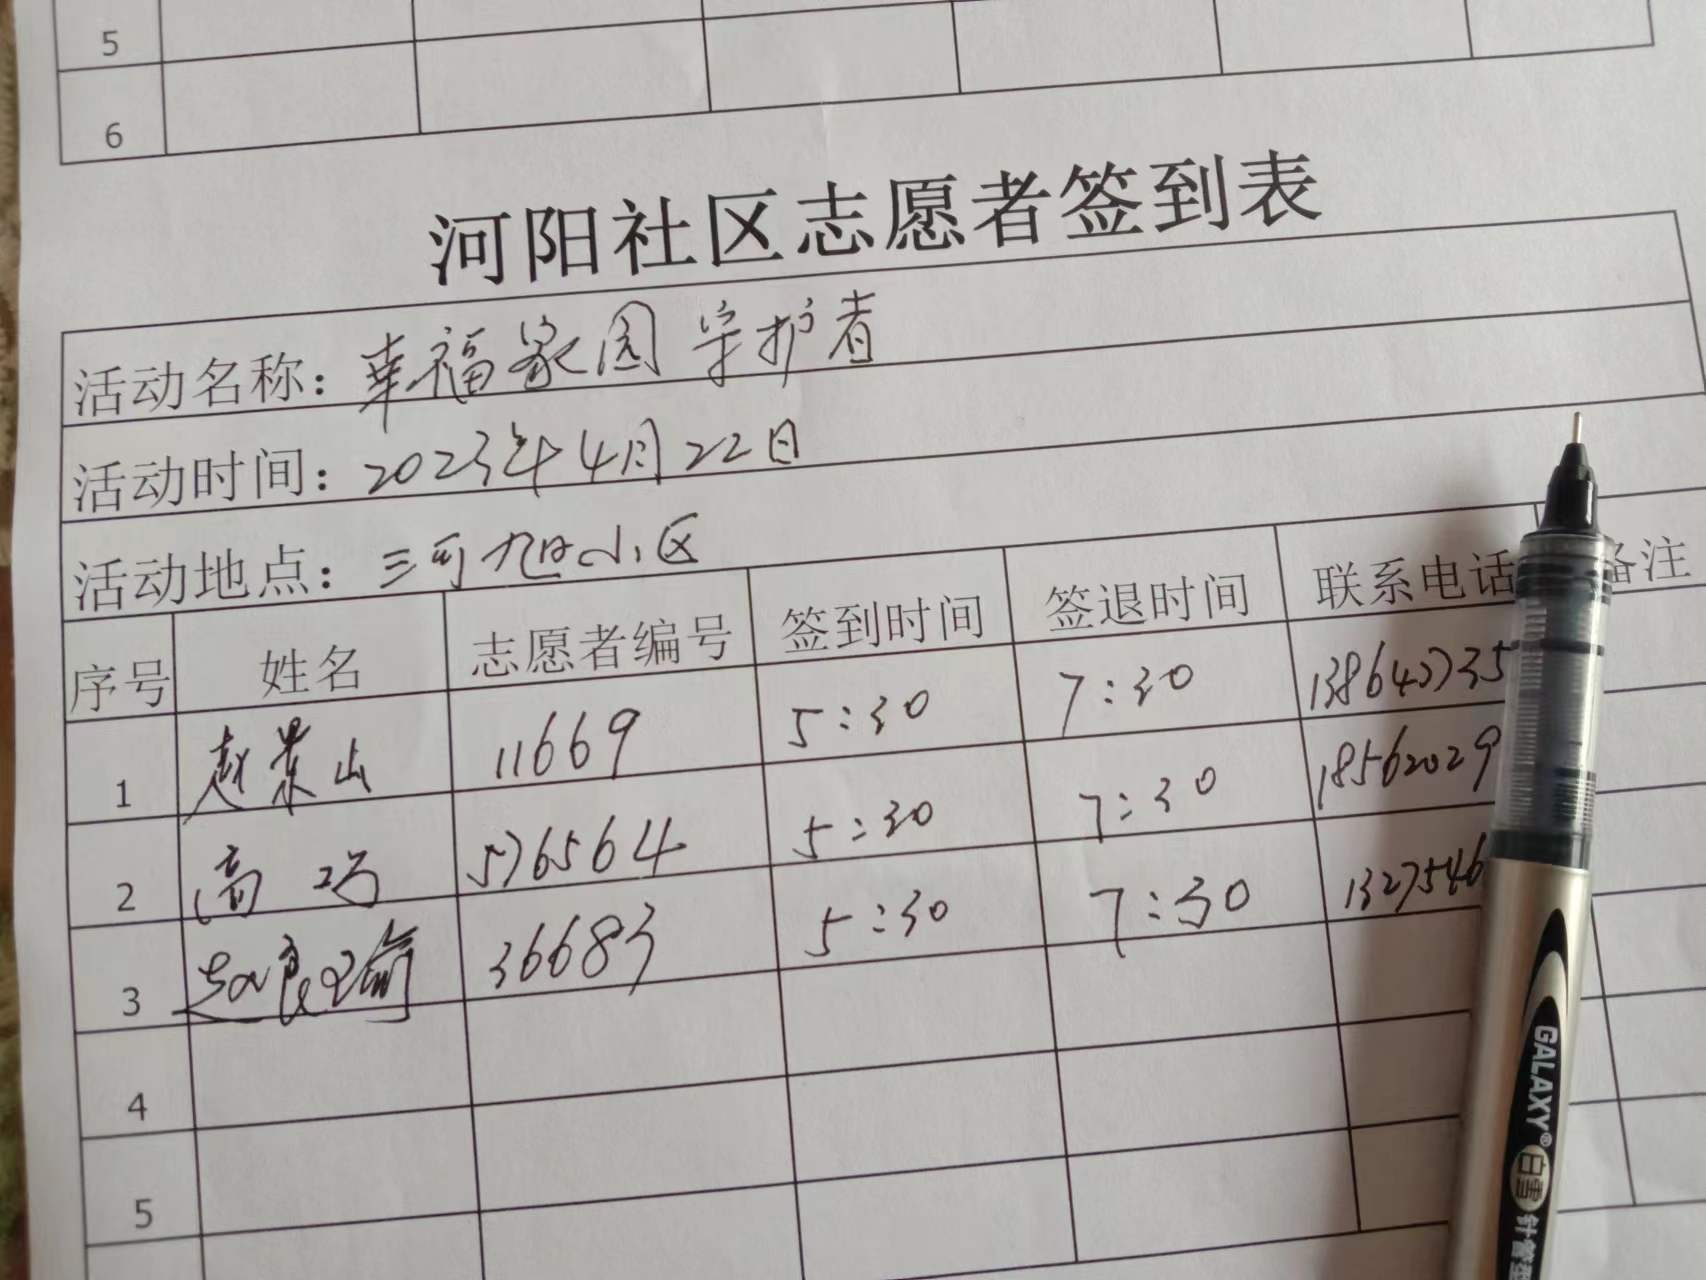 5
6
河阳社区志愿者签到表
活动名称：幸福家园守护者
活动时间：2023年4月22日
活动地点：三可旭日小区
序号 姓名 志愿者编号 签到时间 签退时间 联系电话 备注
1 赵崇山 11669 5:30 7:30
2 高巧 576564 5:30 7:30 18562029
3 赵良瑜 36683 5:30 7:30 1327546
4
5
GALAXY® 白雪 针管型